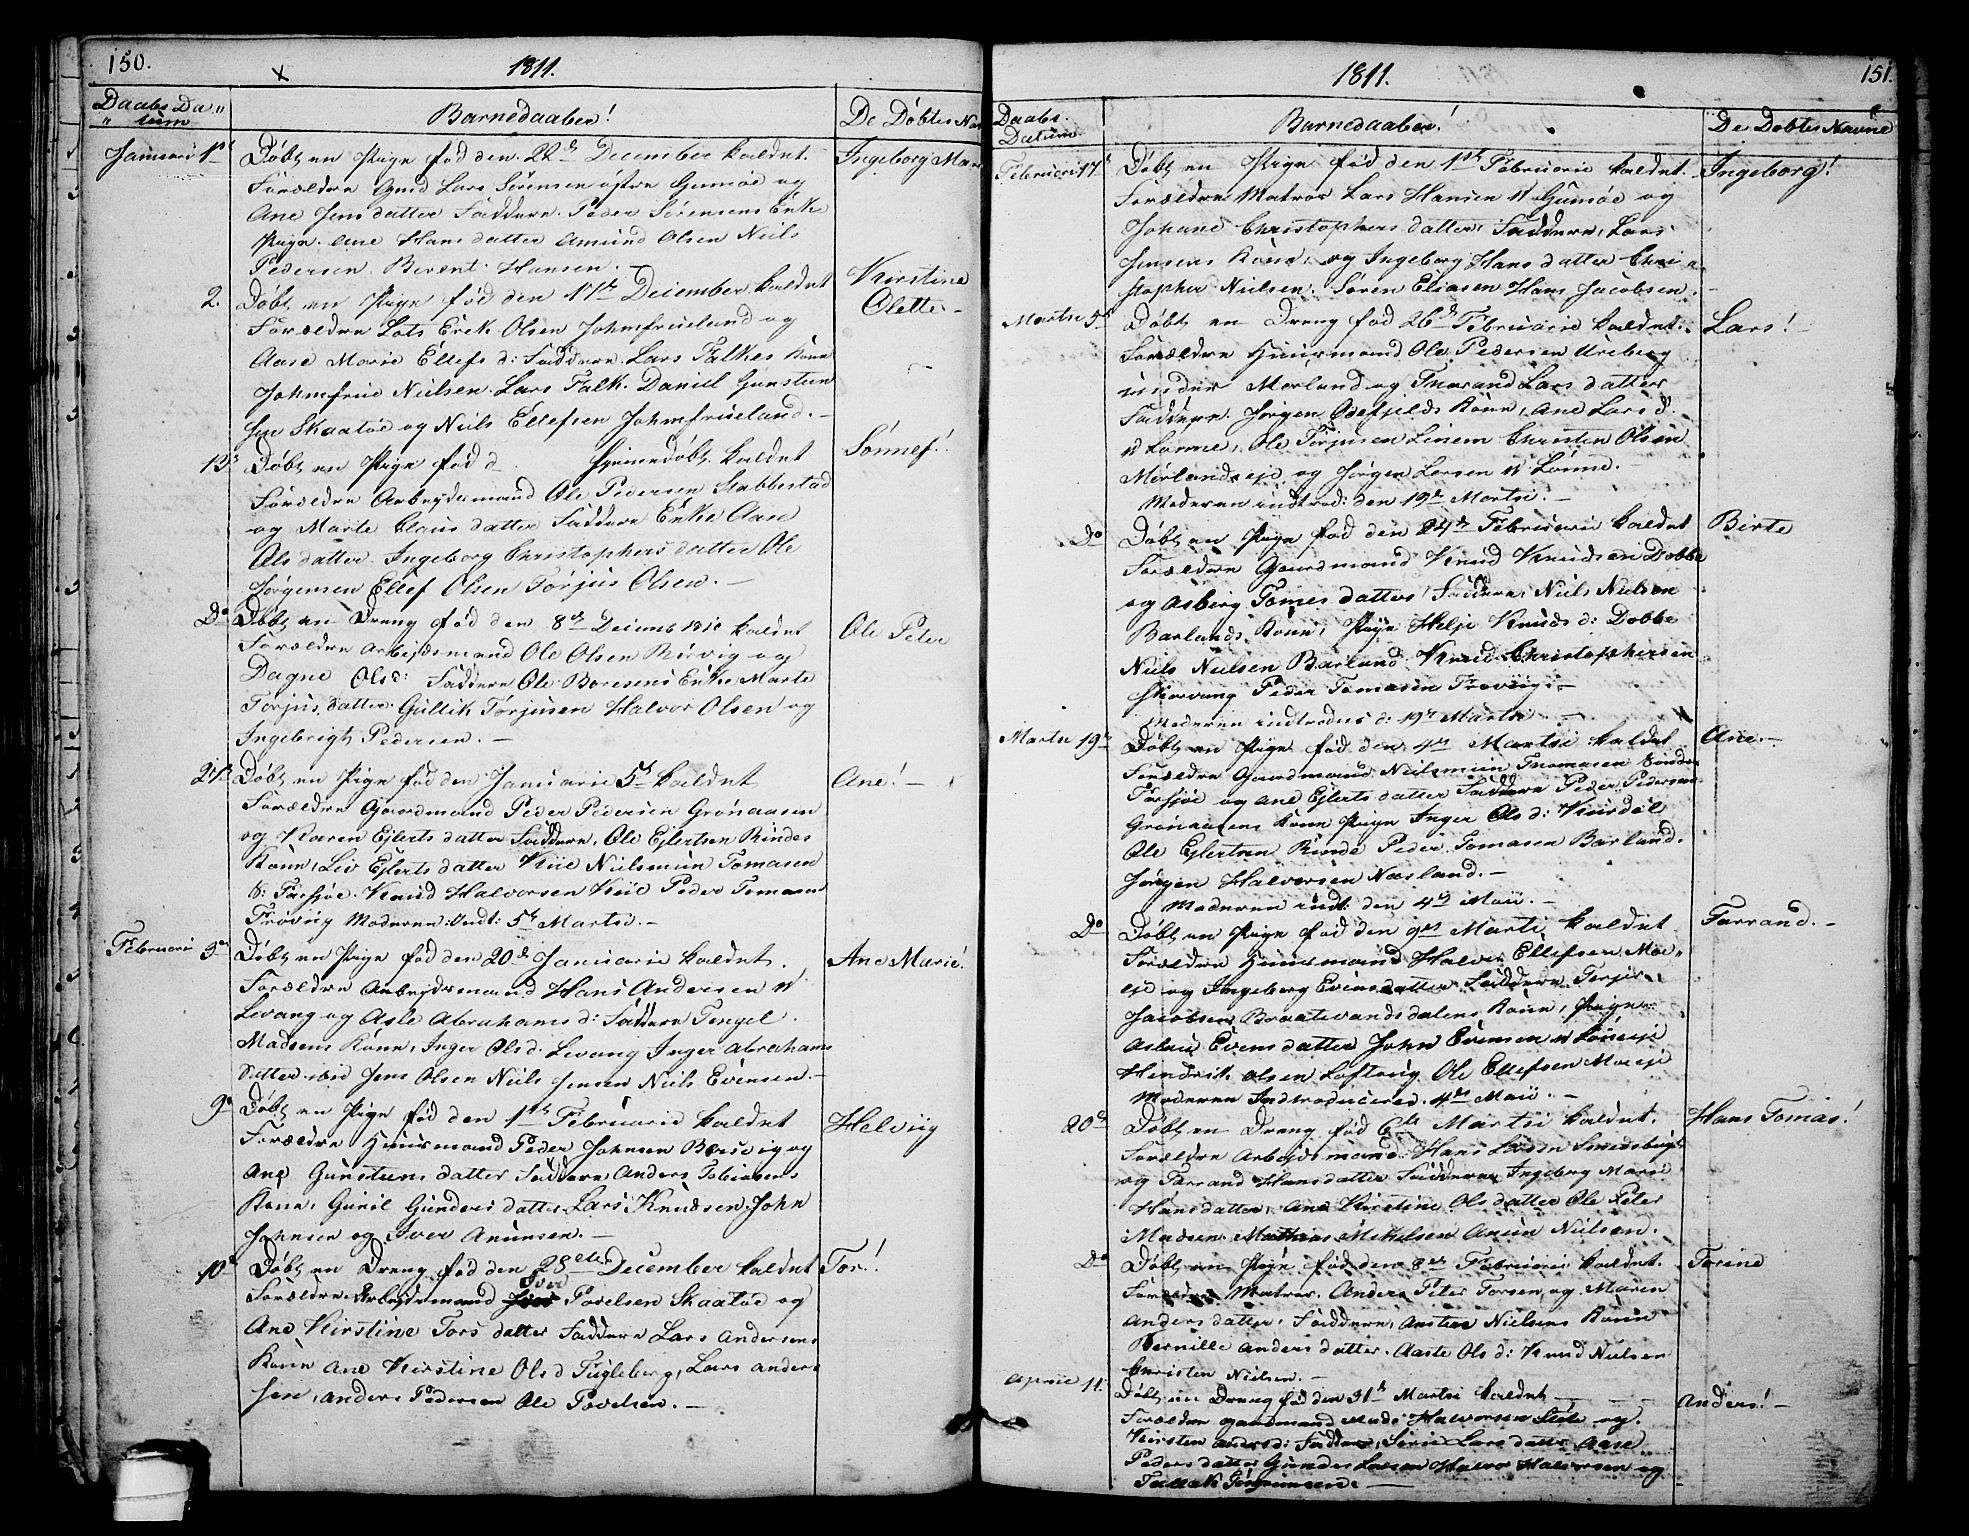 150.
1811.
Daabs Da„
„ tum
Barnedaaber!
De Döbtes Nav
Januari 1st Döbt en Pige föd den 22d December kaldet. Ingeborg Mar
Forældre Gmd Lars Sörensen östre Gumöe og
Ane Jensdatter Faddere. Peder Sörensens Enke
Pige. Ane Hansdatter Amund Olsen Niels
Pedersen. Berent Hansen. –
2. Döbt en Pige föd den 17de December kaldet Kirstine
Forældre Lots Erik Olsen Johmfrueland og Olette –
Aase Marie Ellefs d: Faddere. Lars Falkes Kone
Johmfrue Nielsen. Lars Falk. Daniel Gunsteen
sen Skaatöe og Niels Ellefsen Johmfrueland. –
13 Döbt en Pige föd d hjemedöbt kaldet Sönnef!
Forældre Arbejdsmand Ole Pedersen Stabbestad
og Marte Clausdatter Faddere Enke Aase
Olsdatter. Ingeborg Christophersdatter Ole
Jörgensen Ellef Olsen Torjus Olsen. –
Do Döbt en Dreng föd den 8de Decemb 1810 kaldet Ole Peter
Forældre Arbejdsmand Ole Olsen Rörvig og
Dagne Olsd: Faddere Ole Boresens Enke Marte
Torjus.datter Gullik Torjusen Halvor Olsen og
Ingebrigt Pedersen. –
27. Döbt en Pige föd den Januarie 5t kaldet Ane! –
Forældre Gaardmand Peder Pedersen Grönaasen
og Karen Ejlertsdatter Faddere, Ole Ejlertsen Rindes
Kone, Liv Ejlertsdatter Kiil Nielsmün Tomasen
S: Farsjöe. Knud Halvorsen Kiil Peder Tomasen
Trövig Moderen Indt: 5t Martsi. –
Februari 3de Döbt en Pige föd den 20de Januarie kaldet. Ane Marie!
Forældre Arbejdsmand Hans Andersen N
Levang og Asle Abrahamsd: Faddere Tengel
Madsens Kone, Inger Olsd. Levang Inger Abrahams
datter ibid Jens Olsen Niels Jensen Niels Evensen. –
9de Döbt en Pige föd den 1ste Februarie kaldet Helvig
Forældre Huusmand Peder Johnsen Börsvig og
Ane Gunstensdatter Faddere, Anders Tobiasens
Kone, Gunil Gundersdatter Lars Knudsen John
Johnsen og Iver Anunsen. –
10de Döbt en Dreng föd den 28de December kaldet Tor!
Iver
Forældre Arbejdsmand Povelsen Skaatöe og
Ane Kirstine Torsdatter Faddere Lars Andersens
Kone Ane Kirstine Olsd Fugleberg, Lars Ander
sen, Anders Pedersen Ole Povelsen. –
1811.
151.
Daabs.
Datum
Barnedaaber!
De Dobtes Navne
Februari 17de Döbt en Pige föd den 1ste Februarie kaldet. Ingeborg!
Forældre Matros Lars Hansen N Gumöe og
Johane Christophersdatter, Faddere, Lars
Jensens Kone, og Ingeborg Hansdatter Chri„
stopher Nielsen. Sören Eliasen Hans Jacobsen.
Martsi 5te Döbt en Dreng föd 26de Februarie kaldet. Lars!
Forældre Huusmand Ole Pedersen Ureberg
under Morland og Torand Larsdatter
Faddere Jörgen Ödefjelds Kone, Ane Larsd.
N Lönne, Ole Torjusen Linem Christen Olsen
Mörlandseje og Jörgen Larsen N Lönne. –
Moderen indtrod: den 19de Martsi. –
Do Döbt en Pige föd den 24de Februarie kaldet Birte
Forældre Gaardmand Knud Knudsen Dobbe
og Asberg Tomesdatter, Faddere, Niels Nielsen
Barlands Kone, Pige Helje Knuds d: Dobbe
Niels Nielsen Barland Knud Christophersen
Skarvang Peder Tomasen Trövig. –
Moderen indtrodus d: 19de Martsi. –
Martsi 19de Döbt en Pige föd den 4de Martsi kaldet Ane. –
Forældre Gaardmand Nielsmün Thomasen Söndre
Farsjöe og Ane Ejlertsdatter Faddere Peder Pedersen
Grönaasens Kone Pige Inger Olsd: Kurdöl
Ole Ejlertsen Rinde Peder Tomasen Barland.
Jörgen Halvorsen Næsland. –
Moderen indt: den 4de Maii. –
Do Döbt en Pige föd den 9de Martsi kaldet Tarrand. –
Forældre Huusmand Halvor Ellefsen Moe„
eje og Ingeborg Evensdatter Faddere Terjer
Jacobsen Braatevandsdalens Kone, Pige
Asbug Evensdatter John Evensen N Löneeje
Hendrik Olsen Loftvig Ole Ellefsen Moeeje
Moderen Indtroduceres. 4de Maii. –
20de Döbt en Dreng föd 6te Martsi kaldet. Hans Tomas!
Forældre Arbejdsmand Hans Larsen Smedsbugt
og Tarrand Hansdatter Faddere Ingeborg Marie
Hansdatter, Ane Kirstine Olsdatter Ole Peter
Madsen Mathias Mikelsen Anun Nielsen.
Do Döbt en Pige föd den 8de Februari kaldet. Torine
Forældre Matros. Anders Peter Torsen og Maren
Andersdatter, Faddere, Austen Nielsens Kone
Pernille Andersdatter. Aaste Olsd: Knud Nielsen
Christen Nielsen. –
Aprile 11. Döbt en Dreng föd den 31te Martsi kaldet Anders! –
Forældre gaardmand Mads Halvorsen Slöte og
Kirsten Andersd: Faddere, Sirie Larsdatter Aase
Pedersdatter Gunder Larsen Halvor Halvorsen og
Tallak Görgensen. –